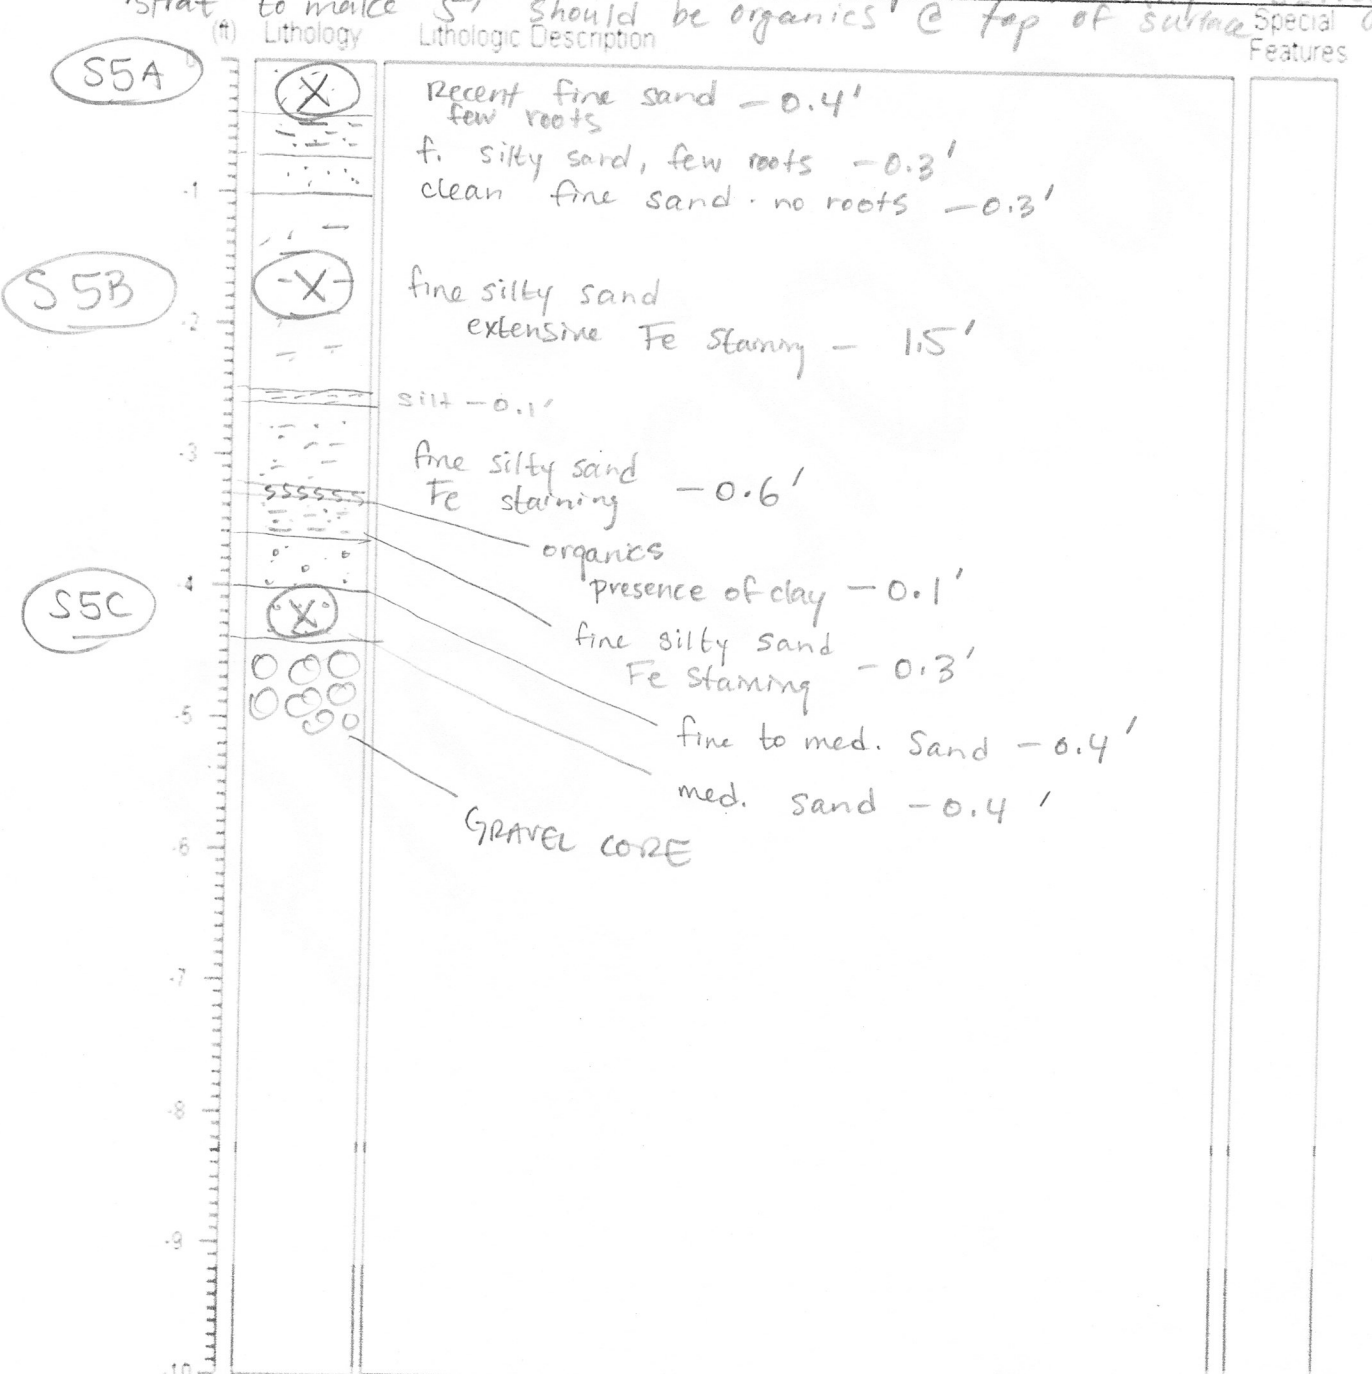 strat to make 5' should be organics @ top of surface
(ft) Lithology Lithologic Description Special
Features
S5A
X
Recent fine sand - 0.4'
few roots
f. silty sand, few roots - 0.3'
-1
clean fine sand. no roots - 0.3'
S5B
-X-
fine silty sand
-2
extensive Fe staining - 1.5'
silt - 0.1'
-3
fine silty sand
Fe staining - 0.6'
sssssss
organics
-4
presence of clay - 0.1'
S5C
X
fine silty sand
Fe staining - 0.3'
-5
fine to med. sand - 0.4'
med. sand - 0.4'
GRAVEL CORE
-6
-7
-8
-9
-10